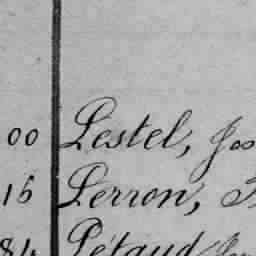 00 Lestel, Jos
15 Lerron,
84 Pétaud Jos